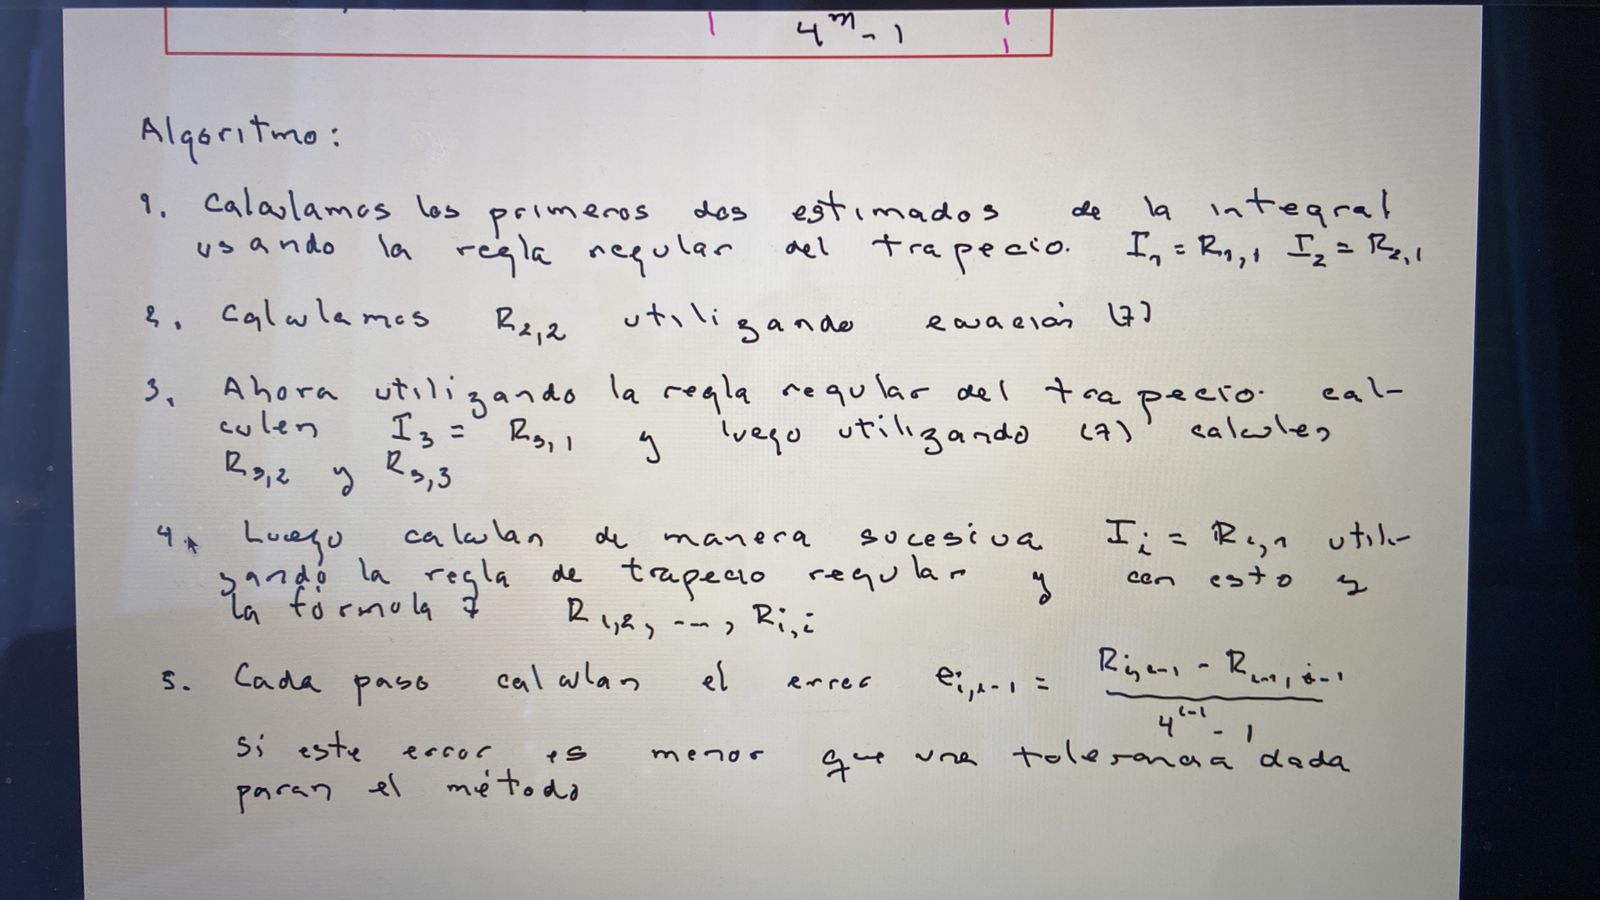 4^m - 1
Algoritmo:
1. Calculamos los primeros dos estimados de la integral
usando la regla regular del trapecio. I₁ = R₁,₁ I₂ = R₂,₁
2. Calculamos R₂,₂ utilizando ecuación (7)
3. Ahora utilizando la regla regular del trapecio. cal-
culen I₃ = R₃,₁ y luego utilizando (7) calculen
R₃,₂ y R₃,₃
4. Luego calculan de manera sucesiva I_i = R_i,₁ utili-
zando la regla de trapecio regular y con esto y
la fórmula 7 R₁,₂, ---, R_i,i
5. Cada paso calculan el error e_i,i-1 = (R_i,i-1 - R_i-1,i-1) / (4^(i-1) - 1)
Si este error es menor que una tolerancia dada
paran el método